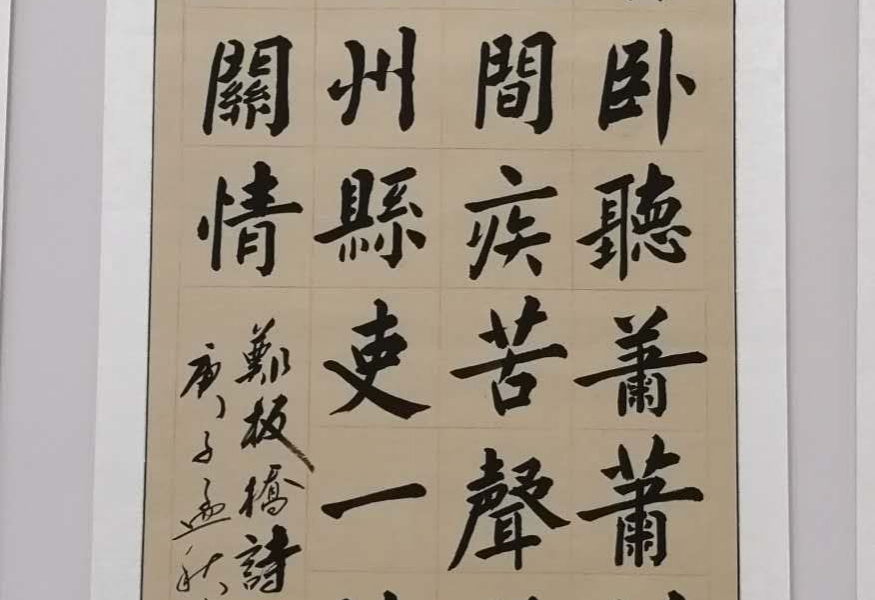 卧聽蕭蕭
間疾苦聲
州縣吏一
關情
鄭板橋詩
庚子孟秋